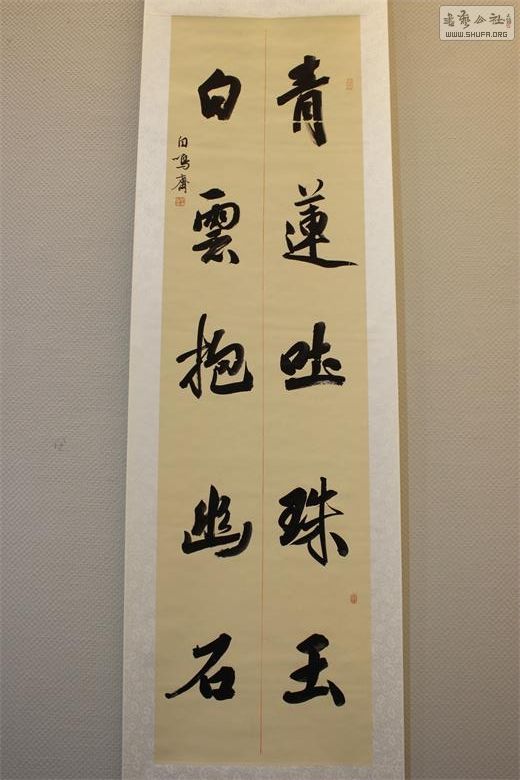 青蓮吐珠玉
白雲抱幽石
白鳴齋
書法公社
WWW.SHUFA.ORG